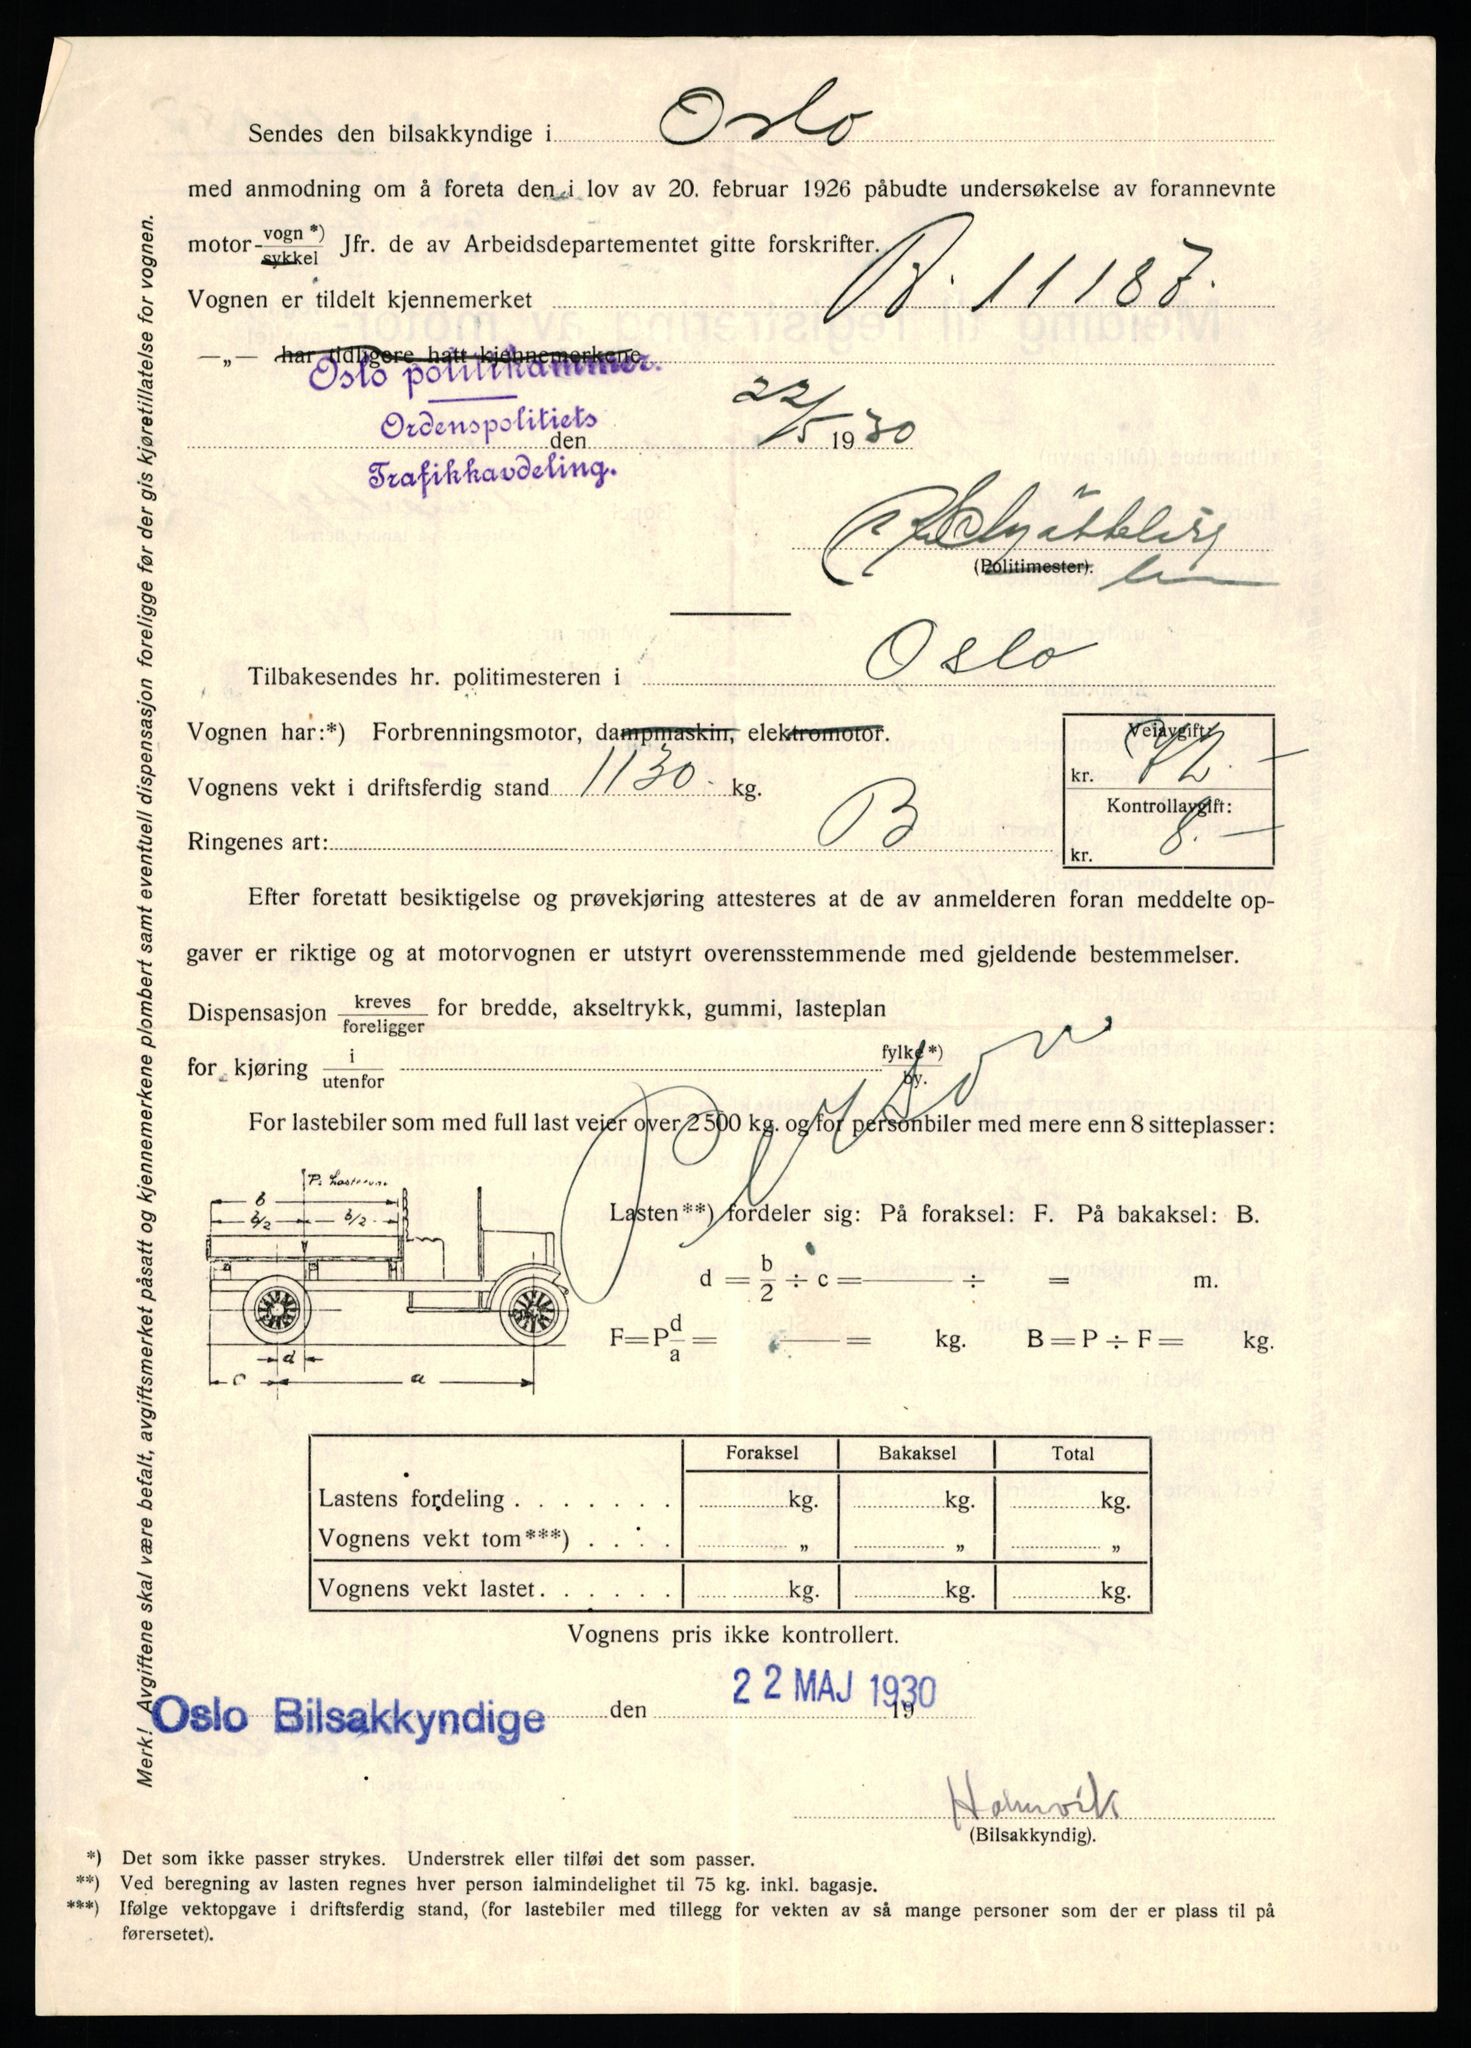 Sendes den bilsakkyndige i Oslo
med anmodning om å foreta den i lov av 20. februar 1926 påbudte undersøkelse av forannevnte
motor- vogn*) / sykkel Jfr. de av Arbeidsdepartementet gitte forskrifter.
Vognen er tildelt kjennemerket B. 11187.
—„— har tidligere hatt kjennemerkene
Oslo politikammer.
Ordenspolitiets
den 22/5 1930
Trafikkavdeling.
(Politimester).
Tilbakesendes hr. politimesteren i Oslo
Vognen har:*) Forbrenningsmotor, dampmaskin, elektromotor.
Veiavgift:
kr. 72.—
Vognens vekt i driftsferdig stand 1130 kg.
Kontrollavgift:
kr. 8.—
Ringenes art: B
Efter foretatt besiktigelse og prøvekjøring attesteres at de av anmelderen foran meddelte op-
gaver er riktige og at motorvognen er utstyrt overensstemmende med gjeldende bestemmelser.
Dispensasjon kreves / foreligger for bredde, akseltrykk, gummi, lasteplan
for kjøring i / utenfor fylke*) / by.
Person
For lastebiler som med full last veier over 2500 kg. og for personbiler med mere enn 8 sitteplasser:
P. Lasterum.
b
b/2 b/2
d
c a
Lasten**) fordeler sig: På foraksel: F. På bakaksel: B.
d = b/2 ÷ c = ÷ = m.
F = P d/a = = kg. B = P ÷ F = kg.
Foraksel Bakaksel Total
Lastens fordeling . . . . . . . kg. kg. kg.
Vognens vekt tom***) . . . . „ „ „
Vognens vekt lastet. . . . . . kg. kg. kg.
Vognens pris ikke kontrollert.
Oslo Bilsakkyndige den 22 MAJ 1930 19
Holmvik
(Bilsakkyndig).
*) Det som ikke passer strykes. Understrek eller tilføi det som passer.
**) Ved beregning av lasten regnes hver person ialmindelighet til 75 kg. inkl. bagasje.
***) Ifølge vektopgave i driftsferdig stand, (for lastebiler med tillegg for vekten av så mange personer som der er plass til på
førersetet).
Merk! Avgiftene skal være befalt, avgiftsmerket påsatt og kjennemerkene plombert samt eventuell dispensasjon foreligge før der gis kjøretillatelse for vognen.